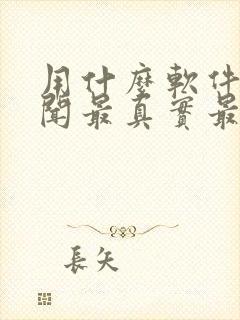 用什麼軟件
聞最真實最
長矢